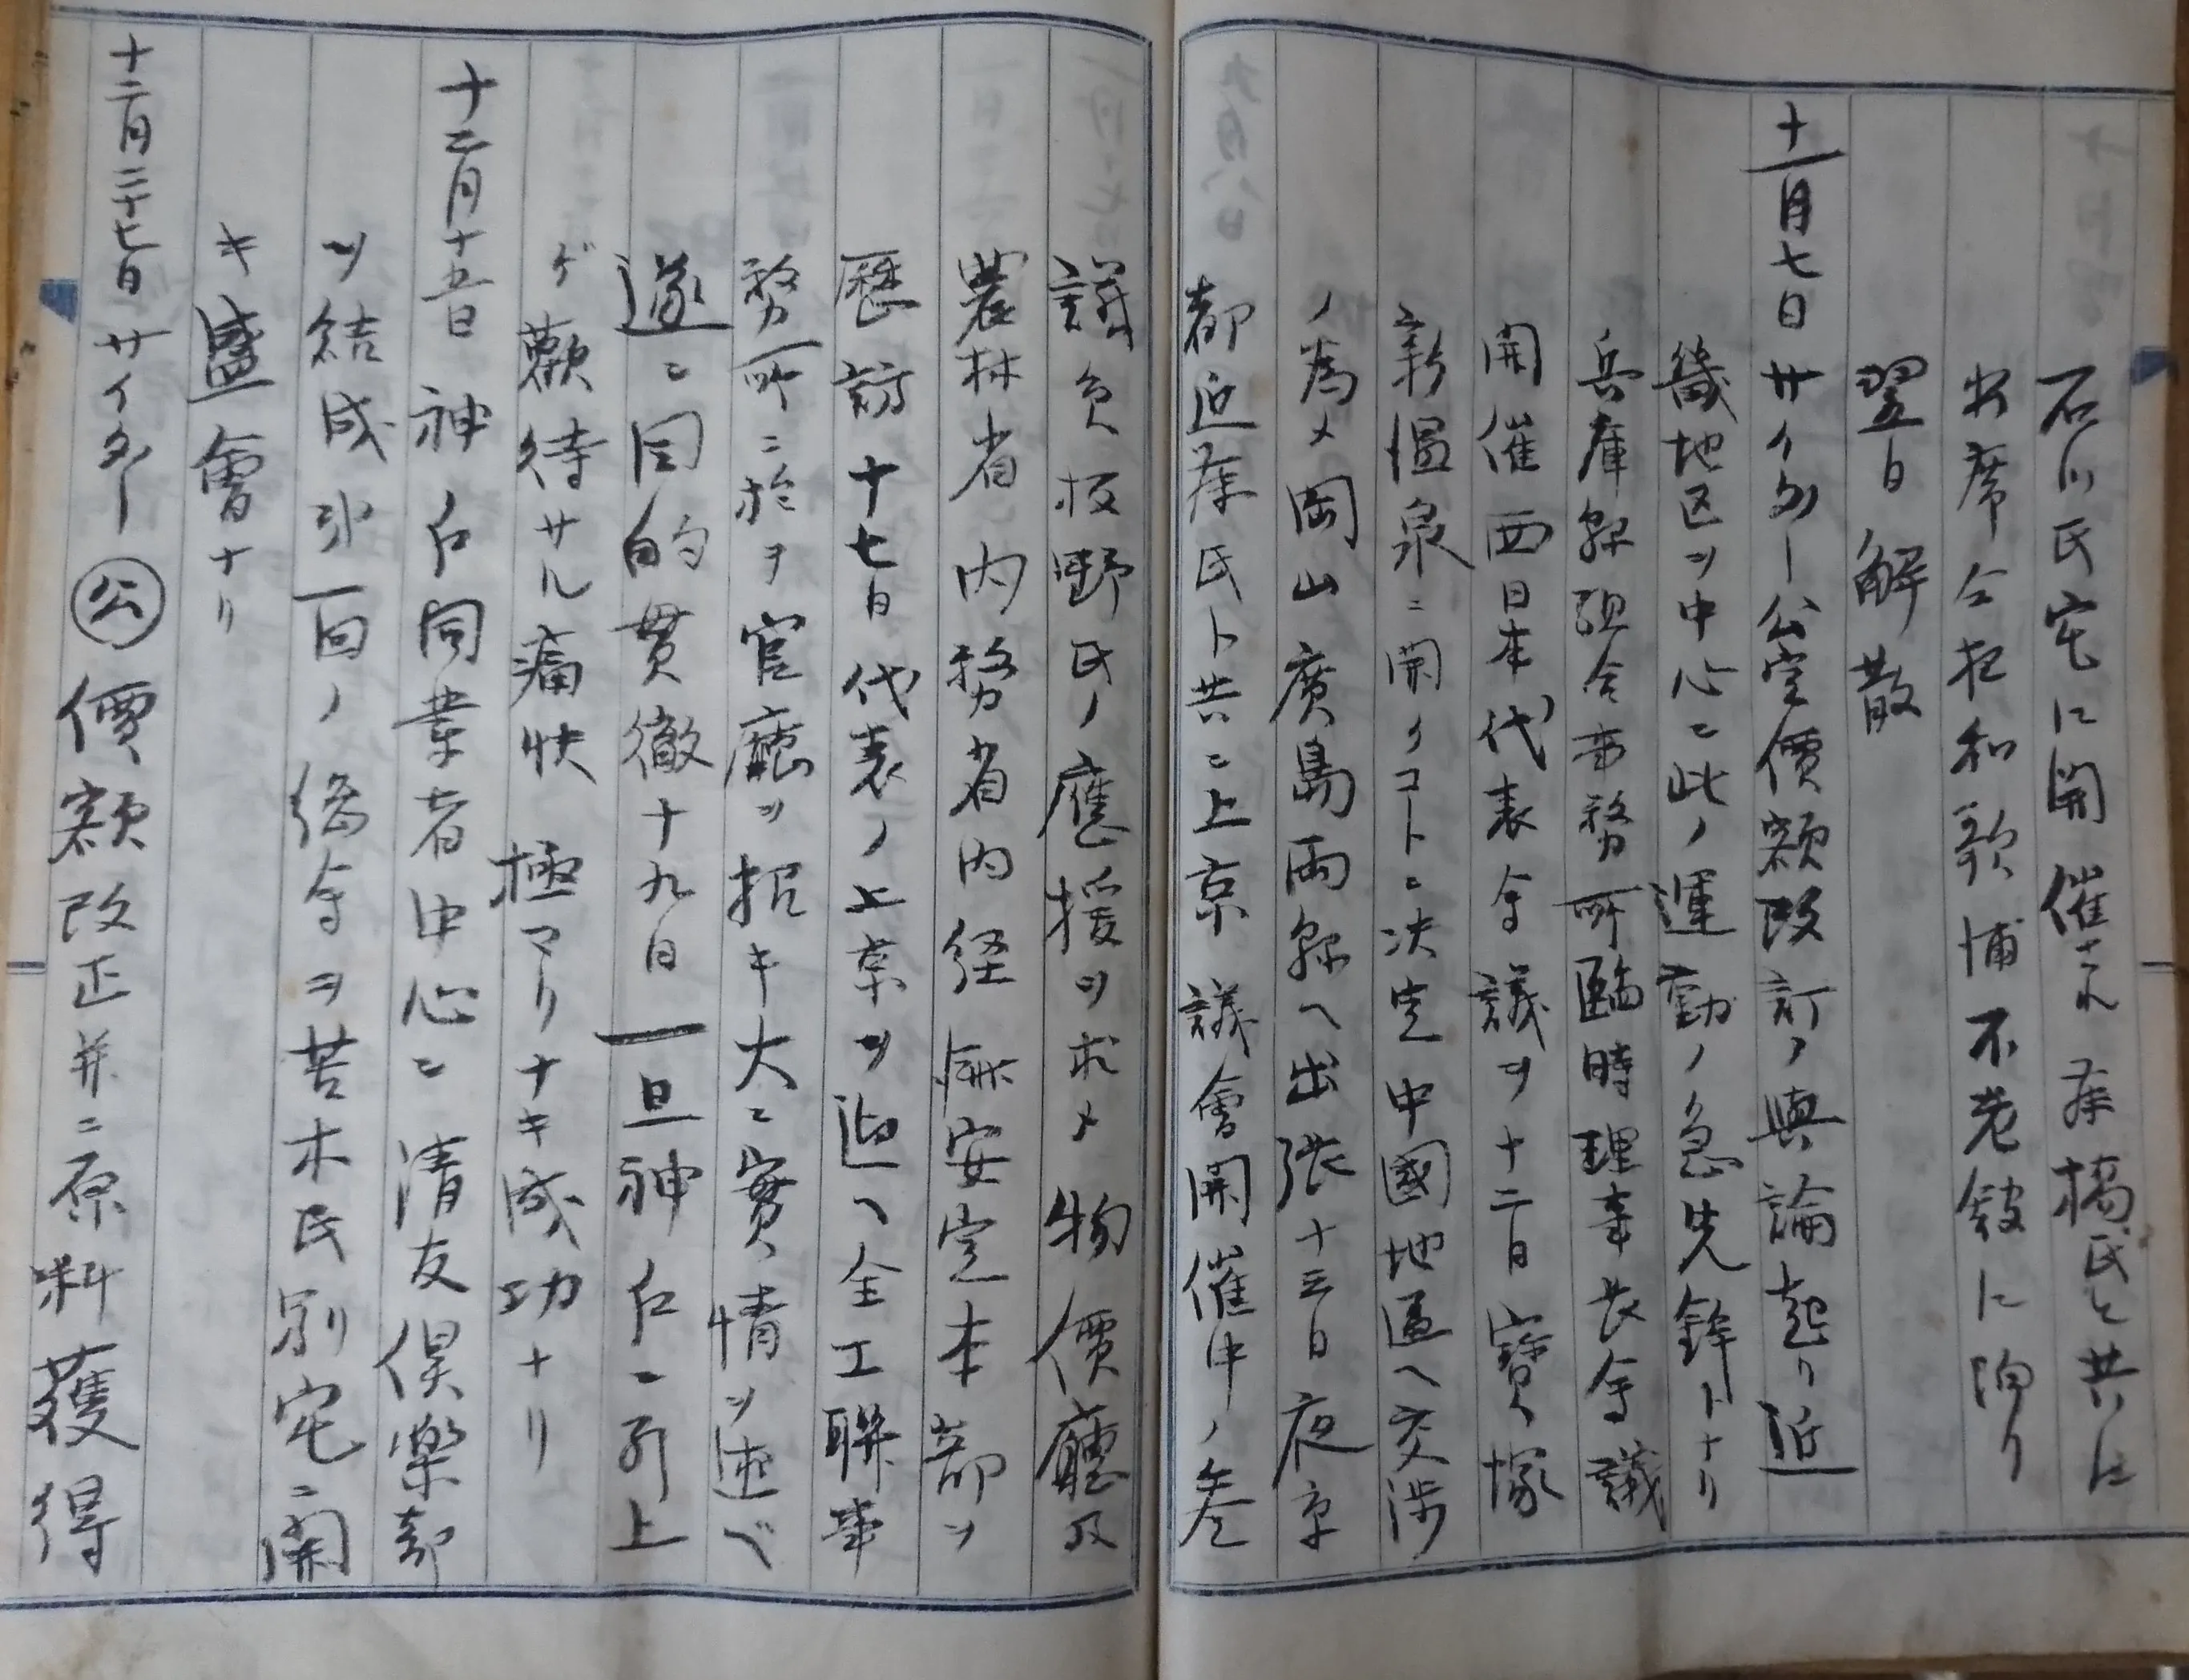 石川氏宅に開催され 森橋氏と共に
出席 今夜和歌浦不老館に泊り
翌日解散
十一月七日 サイダー公定價額改訂ノ輿論起リ近
畿地区ヲ中心ニ此ノ運動ノ急先鋒トナリ
兵庫縣組合事務所臨時理事長会議
開催西日本代表会議ヲ十二日寶塚
新温泉ニ開クコトニ決定中國地區ヘ交渉
ノ為メ岡山廣島両縣ヘ出張十三日夜京
都近藤氏ト共ニ上京議會開催中ノ参
議員板野氏ノ應援ヲ求メ物價廳及
農林省内務省内経済安定本部ヲ
歴訪十七日代表ノ上京ヲ迎ヘ全工聯事
務所ニ於ヲ官廳ヲ招キ大ニ實情ヲ述ベ
遂ニ目的貫徹十九日一旦神戸ニ引上
ゲ歡待サル痛快極マリナキ成功ナリ
十二月十五日 神戸同業者中心ニ清友倶楽部
ヲ結成 第一回ノ総会ヲ苦木氏別宅ニ開
キ盛會ナリ
十二月二十七日 サイダー公價額改正并ニ原料獲得